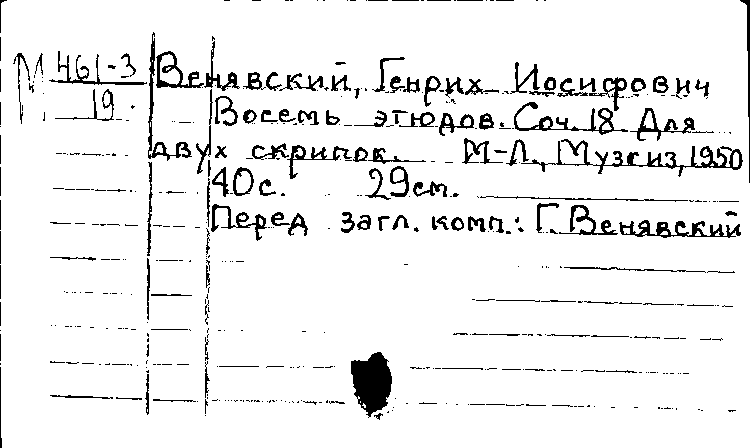 М 461-3 Венявский, Генрих Иосифович
19. Восемь этюдов. Соч. 18. Для
двух скрипок. М-Л., Музгиз, 1950
40с. 29см.
Перед загл. комп.: Г. Венявский